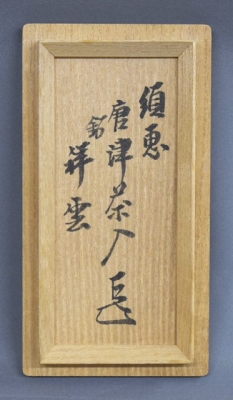 須恵
唐津茶入
銘
祥雲